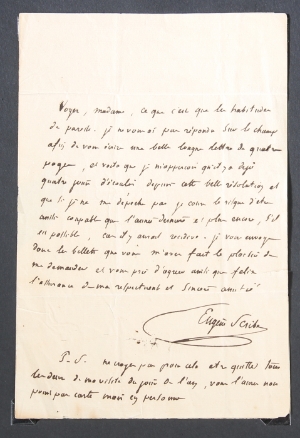 Voyez, madame, ce que c'est que les habitudes
de paresse. je ne vous ai pas répondu sur le champ
afin de vous écrire une belle longue lettre de quatre
pages, et voilà que je m'aperçois qu'il y a déjà
quatre jours d'écoulés depuis cette belle résolution, et
que si je ne me dépêche pas je cours le risque d'être
aussi coupable que l'année dernière et plus encore, s'il
est possible, car il y aurait récidive. je vous envoye
donc les billets que vous m'avez fait le plaisir de
me demander et vous prie d'agréer ainsi que
l'assurance de ma respectueuse et sincère amitié
Eugène Scribe
P.S. ne croyez pas pour cela être quitte
de ma visite du jour de l'an, vous l'aurez non
point par carte mais en personne